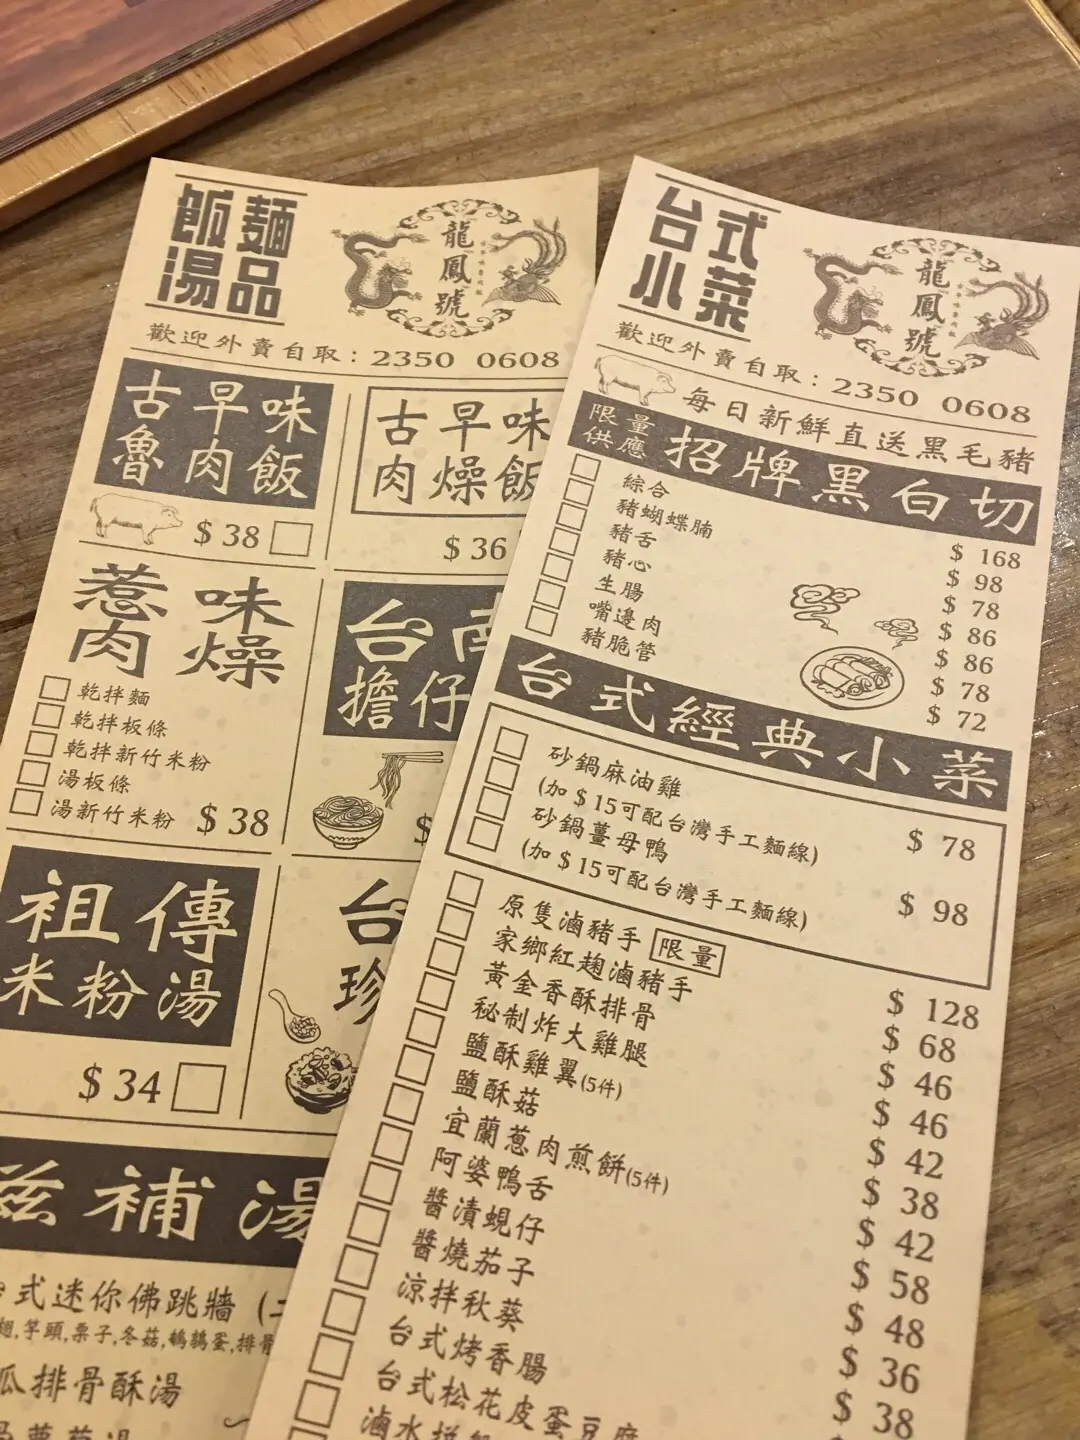 飯麵
湯品
龍鳳號
歡迎外賣自取：2350 0608
古早味
魯肉飯
$ 38
古早味
肉燥飯
$ 36
惹味
肉燥
乾拌麵
乾拌板條
乾拌新竹米粉
湯板條
湯新竹米粉 $ 38
台南
擔仔
$
祖傳
米粉湯
$ 34
台
珍
滋補湯
式迷你佛跳牆
芋頭,栗子,冬菇,鵪鶉蛋,排骨
瓜排骨酥湯
台式
小菜
龍鳳號
歡迎外賣自取：2350 0608
每日新鮮直送黑毛豬
限量
供應
招牌黑白切
綜合 $ 168
豬蝴蝶腩 $ 98
豬舌 $ 78
豬心 $ 86
生腸 $ 86
嘴邊肉 $ 78
豬脆管 $ 72
台式經典小菜
砂鍋麻油雞 $ 78
(加 $ 15可配台灣手工麵線)
砂鍋薑母鴨 $ 98
(加 $ 15可配台灣手工麵線)
原隻滷豬手 限量 $ 128
家鄉紅麴滷豬手 $ 68
黃金香酥排骨 $ 46
秘制炸大雞腿 $ 46
鹽酥雞翼(5件) $ 42
鹽酥菇 $ 38
宜蘭蔥肉煎餅(5件) $ 42
阿婆鴨舌 $ 58
醬漬蜆仔 $ 48
醬燒茄子 $ 36
涼拌秋葵 $ 38
台式烤香腸
台式松花皮蛋豆腐
滷水拼